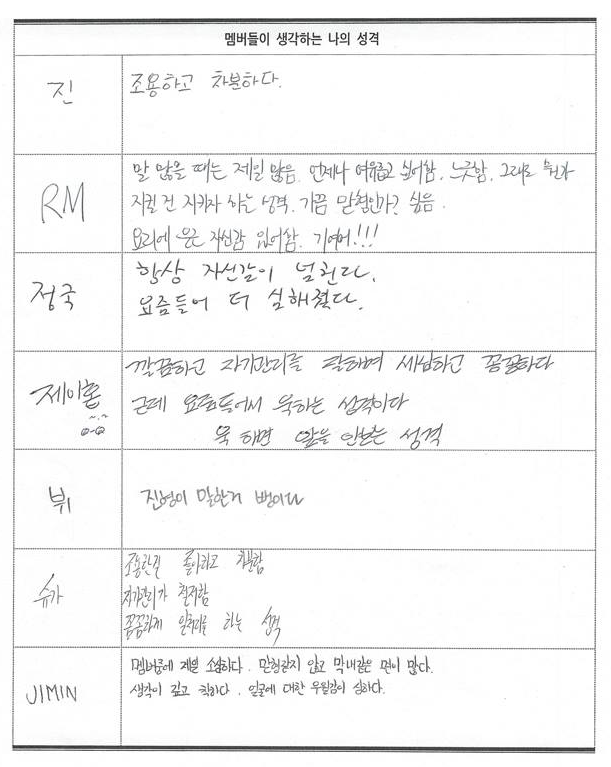 멤버들이 생각하는 나의 성격
진
조용하고 차분하다.
RM
말 많을 때는 제일 많음. 언제나 여유롭고 싶어함. 느긋함. 그래도 뭔가
지킬 건 지키자 하는 성격. 가끔 맏형인가? 싶음.
요리에 은근 자신감 있어함. 귀여워!!!
정국
항상 자신감이 넘친다.
요즘들어 더 심해졌다.
제이홉
깔끔하고 자기관리를 잘하며 세심하고 꼼꼼하다
근데 요즘들어서 욱하는 성격이다
욱 하면 앞을 안보는 성격
뷔
진형이 말한거 뻥이다
슈가
조용한걸 좋아하고 차분함
자기관리가 철저함
꼼꼼하게 일처리를 하는 성격
JIMIN
멤버중에 제일 소심하다. 맏형답지 않고 막내같은 면이 많다.
생각이 깊고 착하다. 얼굴에 대한 우월감이 심하다.